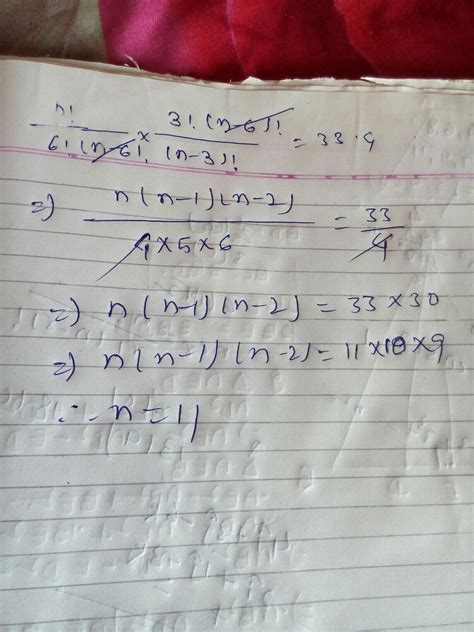 n! / 6!(n-6)! × 3!(n-6)! / (n-3)! = 33.4
⇒) n(n-1)(n-2) / 4×5×6 = 33/4
=) n(n-1)(n-2) = 33×30
=) n(n-1)(n-2) = 11×10×9
∴ n = 11